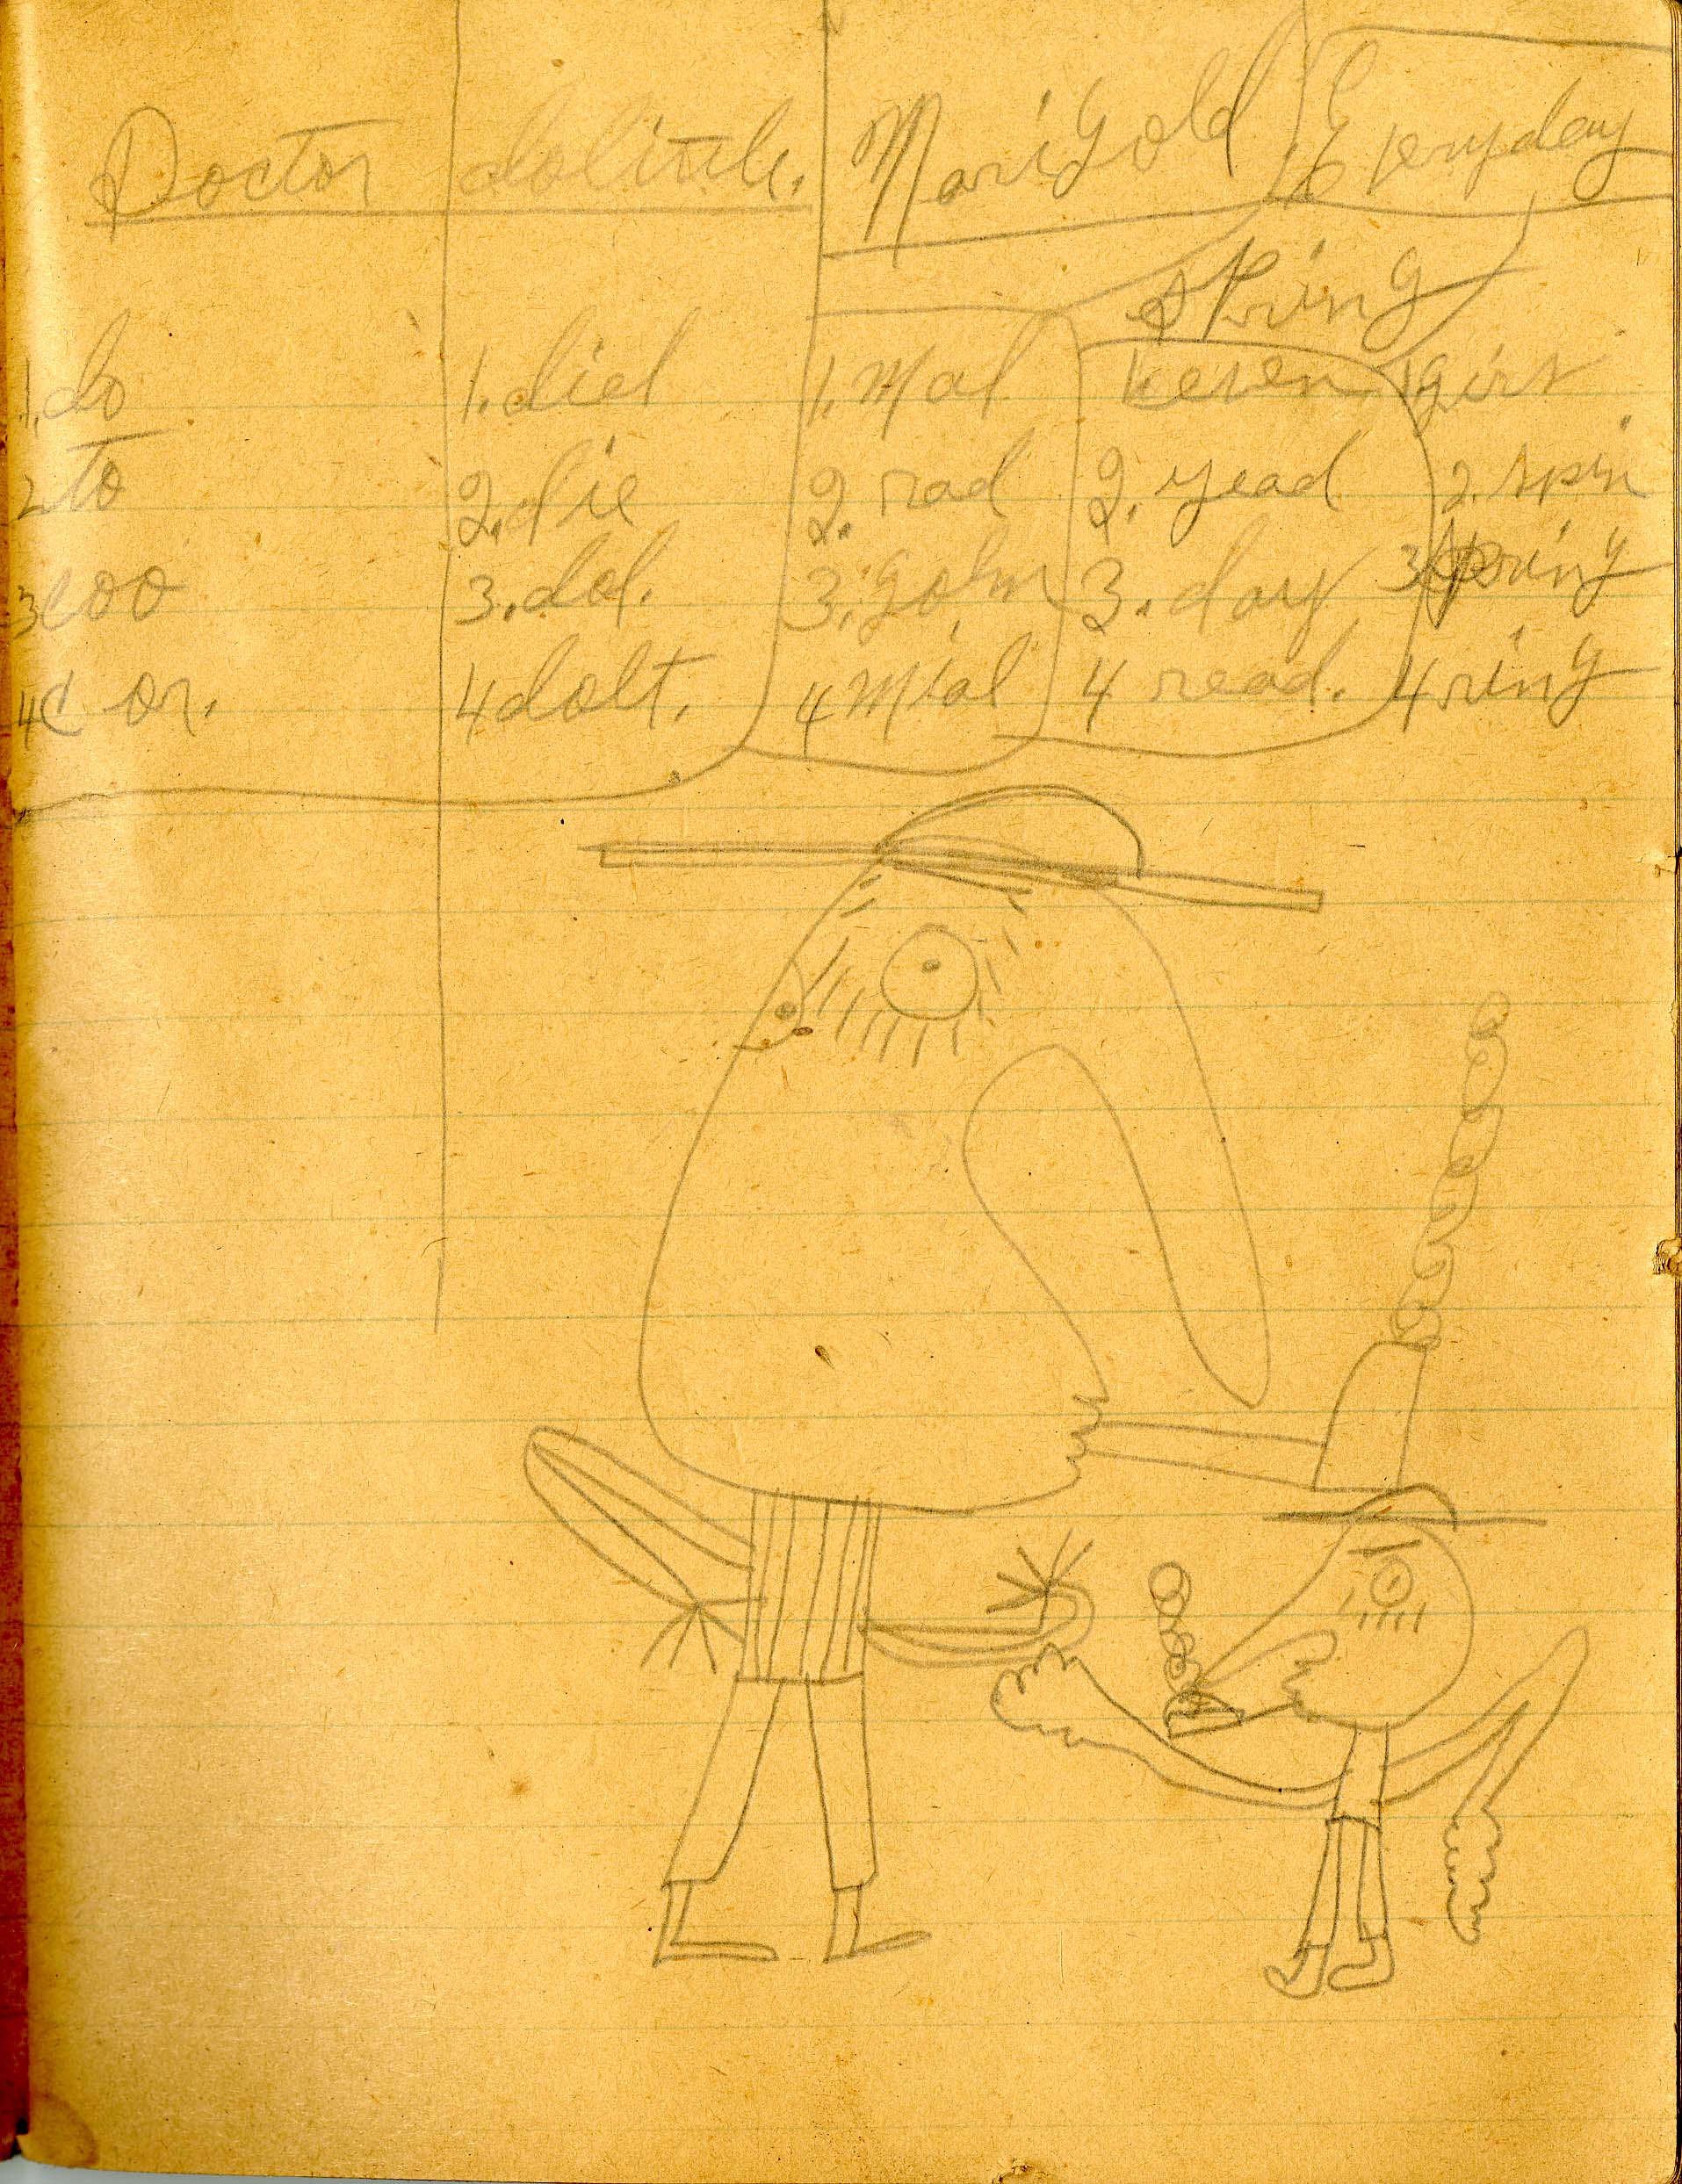 Doctor dolittle. Marigold Everyday
Spring
1. do 1. diel 1. Mal 1. even 1 girs
2 to 2. die 2. rad 2. yead 2. spin
3 coo 3. dol. 3. gohn 3. day 3 Spring
4 or. 4 dolt. 4 Mial 4 read. 4 ring